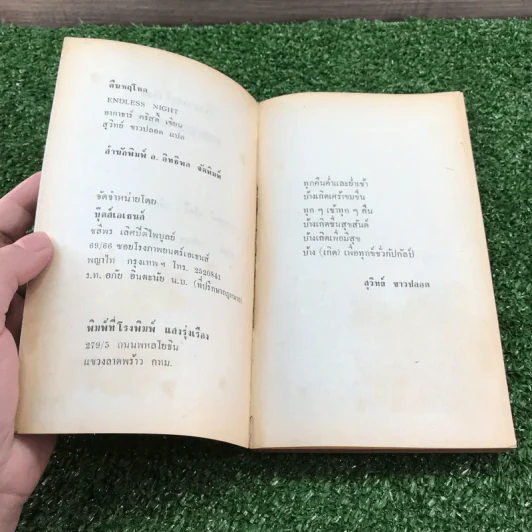 คืนหฤโหด
ENDLESS NIGHT
อากาธาร์ คริสตี้ เขียน
สุวิทย์ ขาวปลอด แปล
สำนักพิมพ์ อ. อิทธิพล จัดพิมพ์
จัดจำหน่ายโดย
บุ๊คส์เอเยนส์
ชลิพร เลิศปิติไพบูลย์
69/66 ซอยโรงภาพยนตร์เอเธนส์
พญาไท กรุงเทพฯ โทร. 2520841
ร.ท. อภัย อินตะนัย น.บ. (ที่ปรึกษากฎหมาย)
พิมพ์ที่โรงพิมพ์ แสงรุ่งเรือง
279/5 ถนนพหลโยธิน
แขวงลาดพร้าว กทม.
ทุกคืนค่ำและย่ำเช้า
บ้างเกิดเศร้าขมขื่น
ทุก ๆ เช้าทุก ๆ คืน
บ้างเกิดชื่นสุขสันต์
บ้างเกิดเพื่อมีสุข
บ้าง (เกิด) เพื่อทุกข์ชั่วกัปกัลป์
สุวิทย์ ขาวปลอด